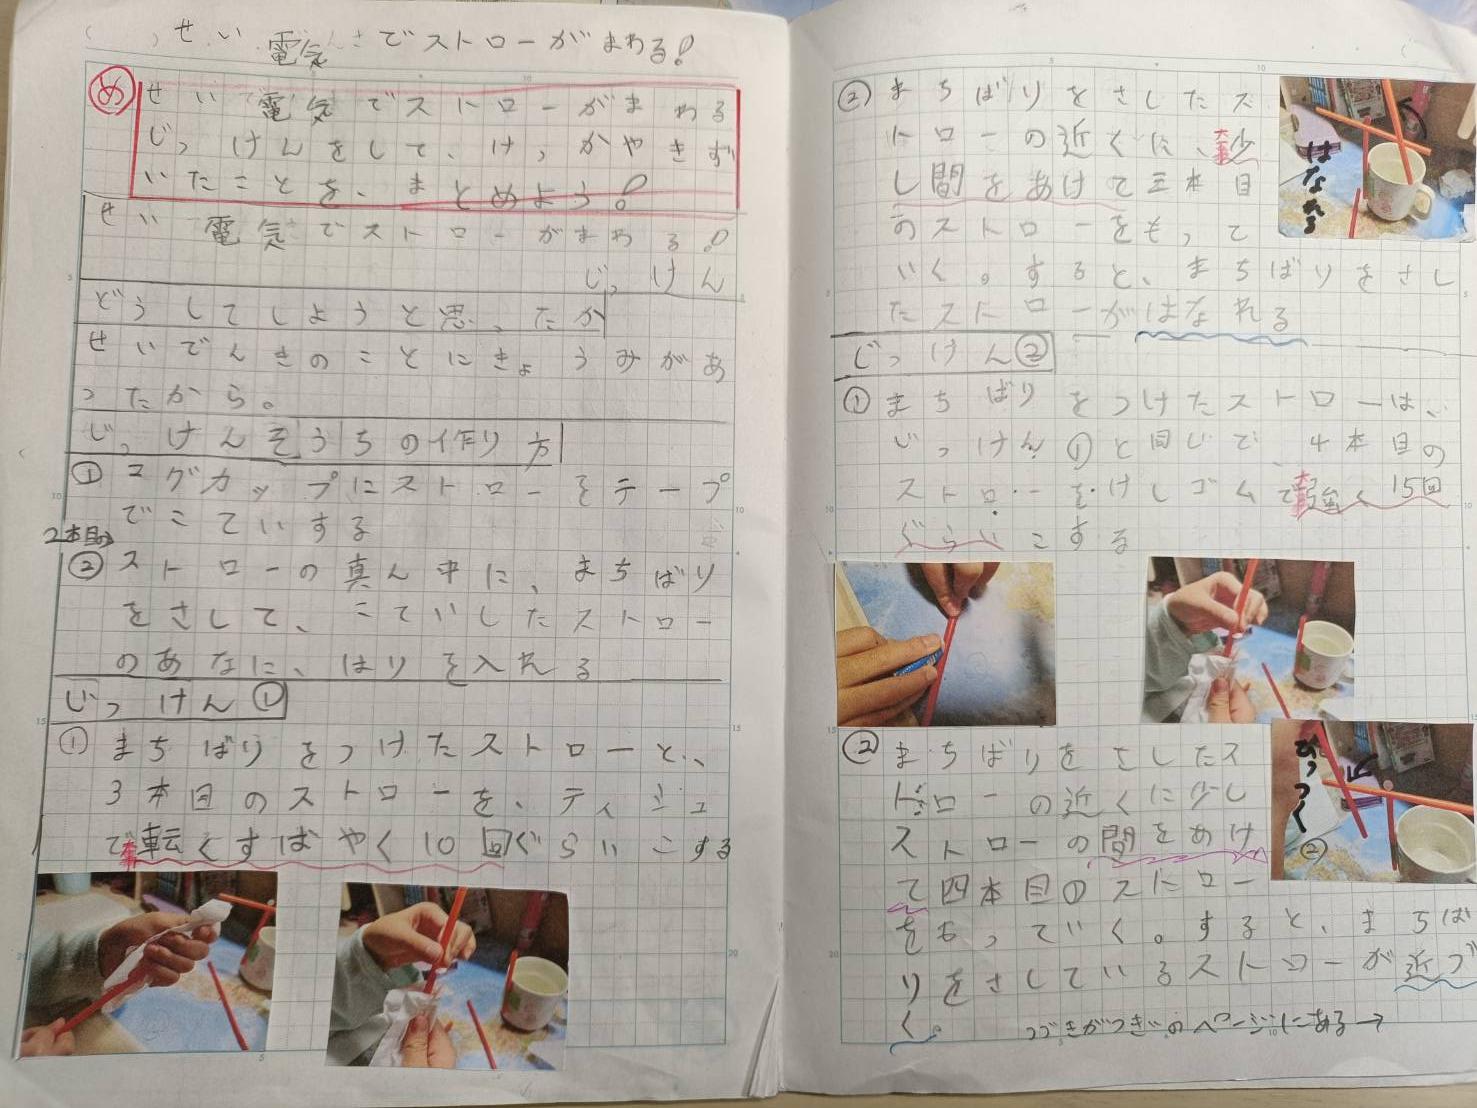 せい電気でストローがまわる!
め
せい電気でストローがまわる
じっけんをして、けっかやきず
いたことを、まとめよう!
せい電気でストローがまわる!
じっけん
どうしてしようと思ったか
せいでんきのことにきょうみがあ
ったから。
じっけんそうちの作り方
① マグカップにストローをテープ
でこていする
2本目の
② ストローの真ん中に、まちばり
をさして、こていしたストロー
のあなに、はりを入れる
じっけん①
① まちばりをつけたストローと、
3本目のストローを、ティシュ
で転くすばやく10回ぐらいこする
② まちばりをさしたス
トローの近くに、少
し間をあけて三本目
のストローをもって
いく。すると、まちばりをさし
たストローがはなれる
はなれる
じっけん②
① まちばりをつけたストローは、
じっけん①と同じで 4本目の
ストローをけしゴムで強く15回
ぐらいこする
② まちばりをさしたス
トローの近くに少し
ストローの間をあけ
て四本目のストロー
をもっていく。すると、まちば
りをさしているストローが近づ
く。
ひっつく
②
つづきがつぎのページにある→